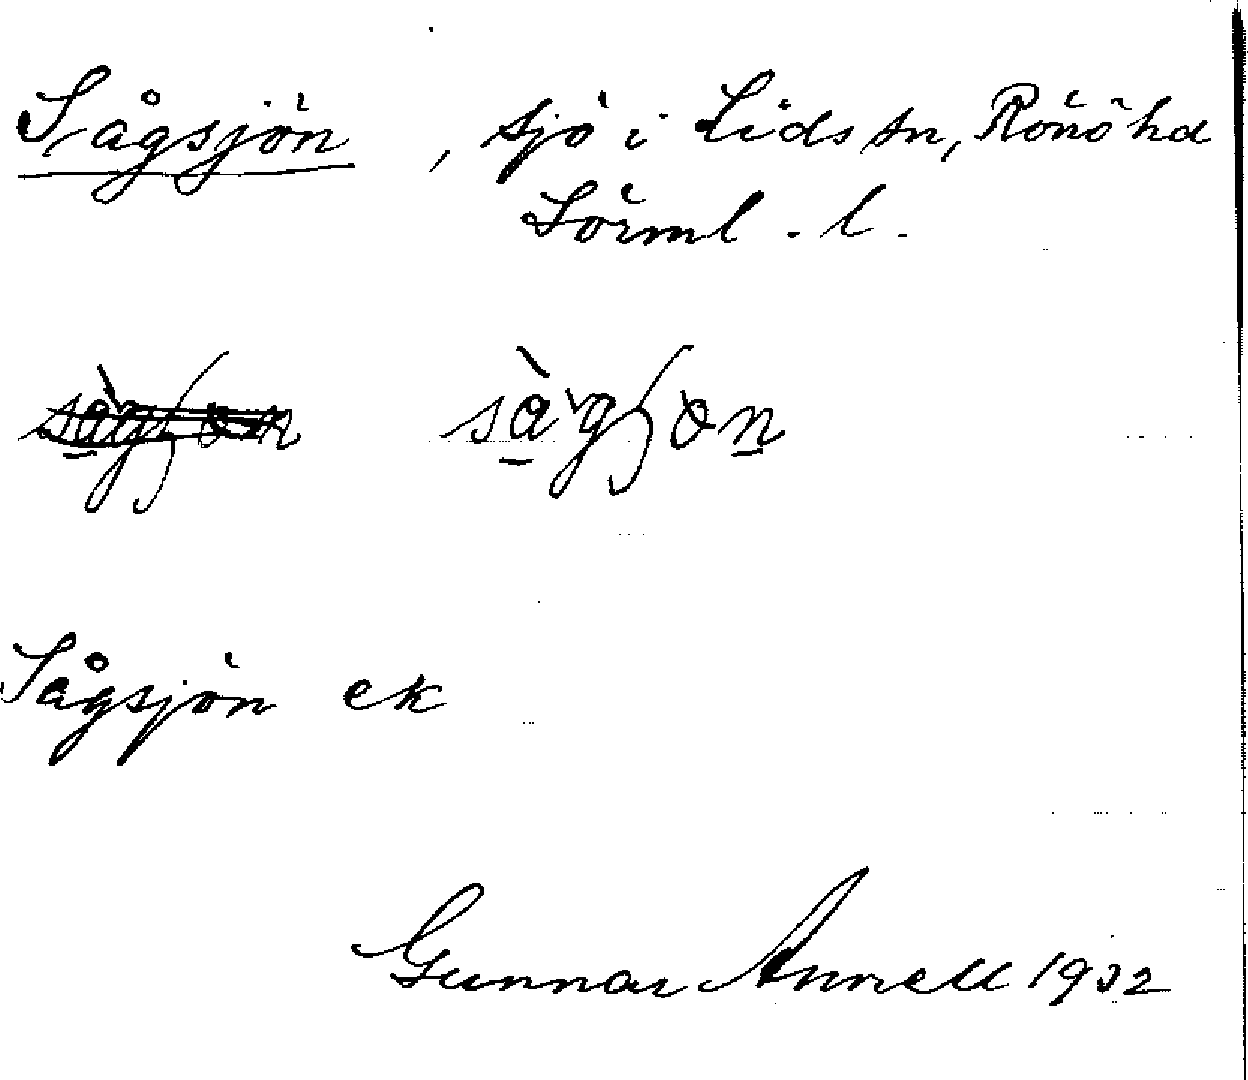 Sågsjön, sjö i Lids sn, Rönö hd
Sörml. l.
Sågsjön ek
Gunnar Annell 1932